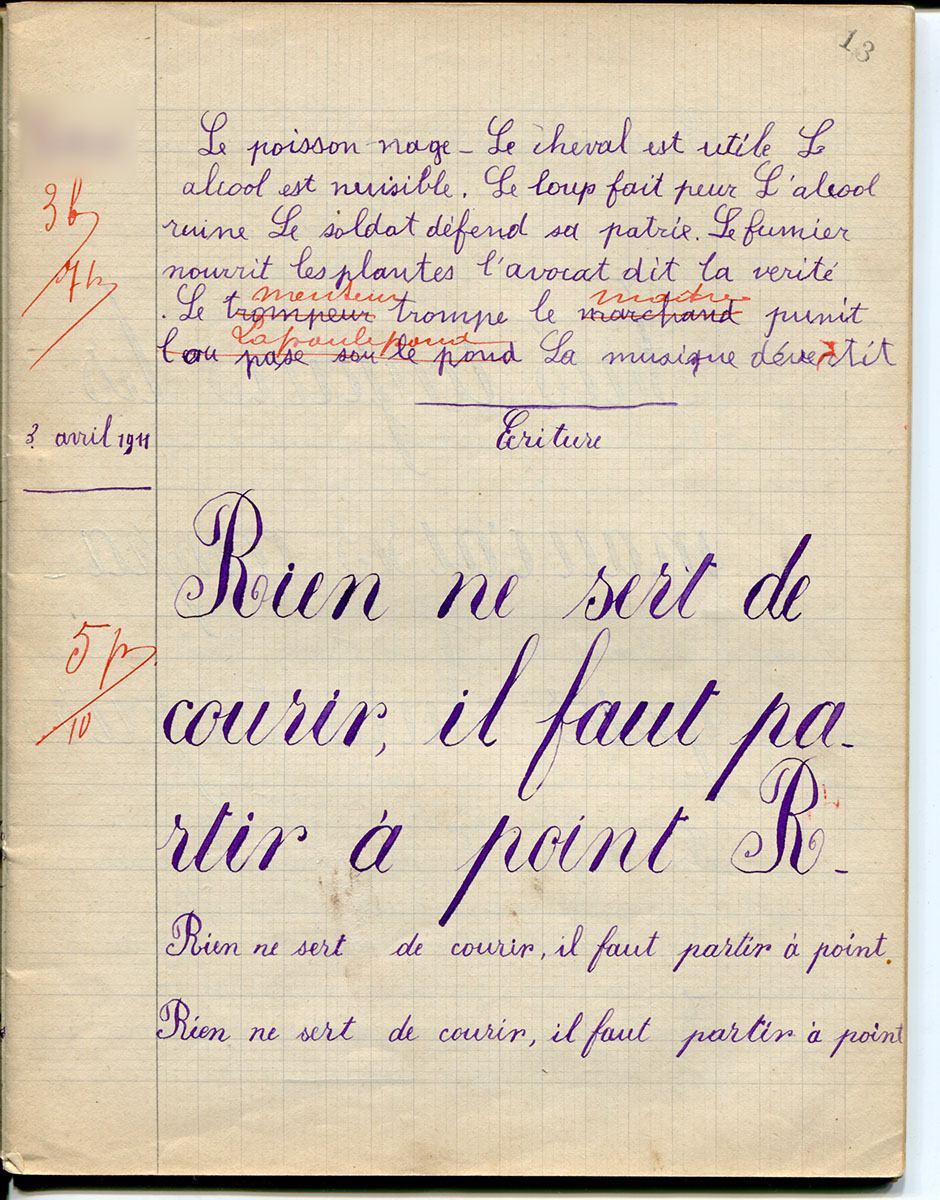 13
Le poisson nage - Le cheval est utile Le
alcool est nuisible. Le loup fait peur L'alcool
ruine Le soldat défend sa patrie. Le fumier
nourrit les plantes l'avocat dit la verité
menteur maitre
. Le trompeur trompe le marchand punit
La poule pond
pase le pond La musique dévertit
3 b
7 b
3 avril 1911
Ecriture
Rien ne sert de
courir, il faut pa-
rtir à point R-
5 p
10
Rien ne sert de courir, il faut partir à point.
Rien ne sert de courir, il faut partir à point